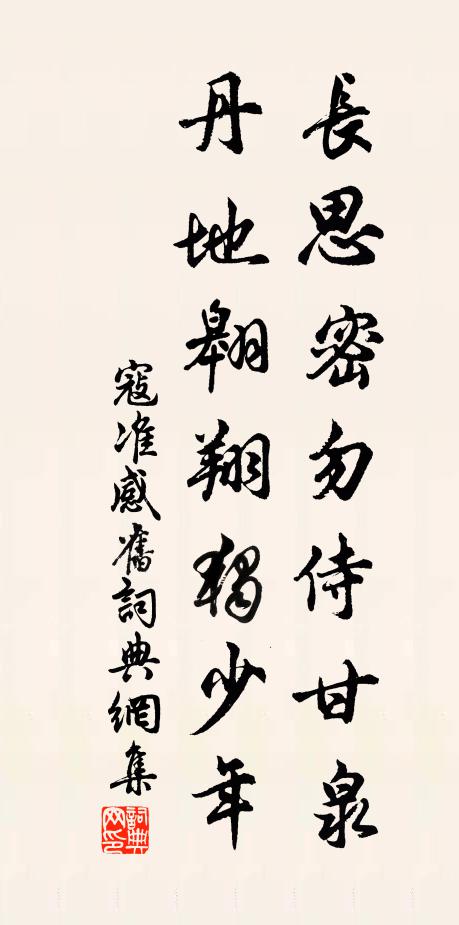 長思密勿侍甘泉
丹地翱翔獨少年
寇准感舊詞典網集
詞典網印